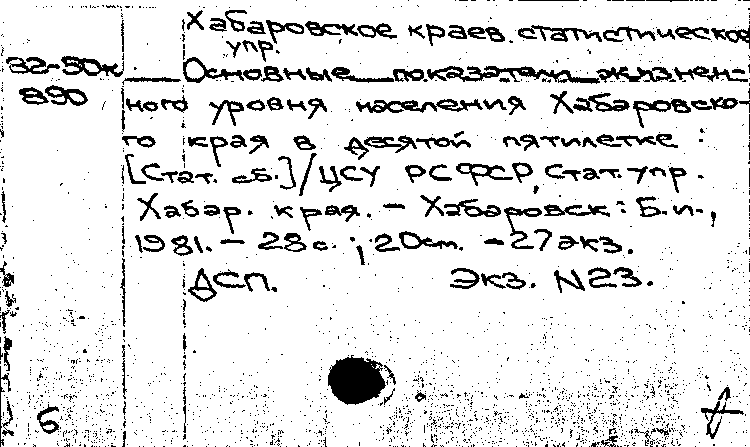 Хабаровское краев. статистическое
упр.
32-50к Основные показатели жизнен-
890 ного уровня населения Хабаровско-
го края в десятой пятилетке :
[Стат. сб.]/ЦСУ РСФСР, Стат. упр.
Хабар. края. - Хабаровск : Б.и.,
1981. - 28 с. ; 20 см. - 27 экз.
ДСП. Экз. N23.
б